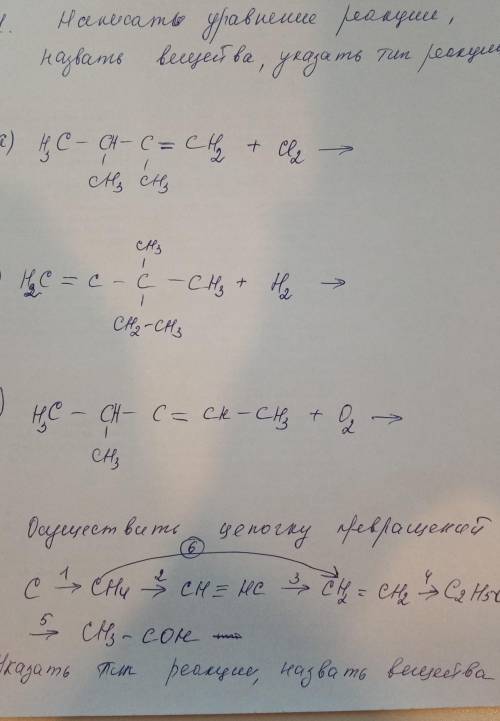 1. Написать уравнение реакции,
назвать вещества, указать тип реакции
а) H3C - CH - C = CH2 + Cl2 →
CH3 CH3
CH3
H2C = C - C - CH3 + H2 →
CH2-CH3
) H3C - CH - C = CH - CH3 + O2 →
CH3
Осуществить цепочку превращений
6
C 1→ CH4 2→ CH ≡ HC 3→ CH2 = CH2 4→ C2H5O
5→ CH3 - COH
Указать тип реакции, назвать вещества